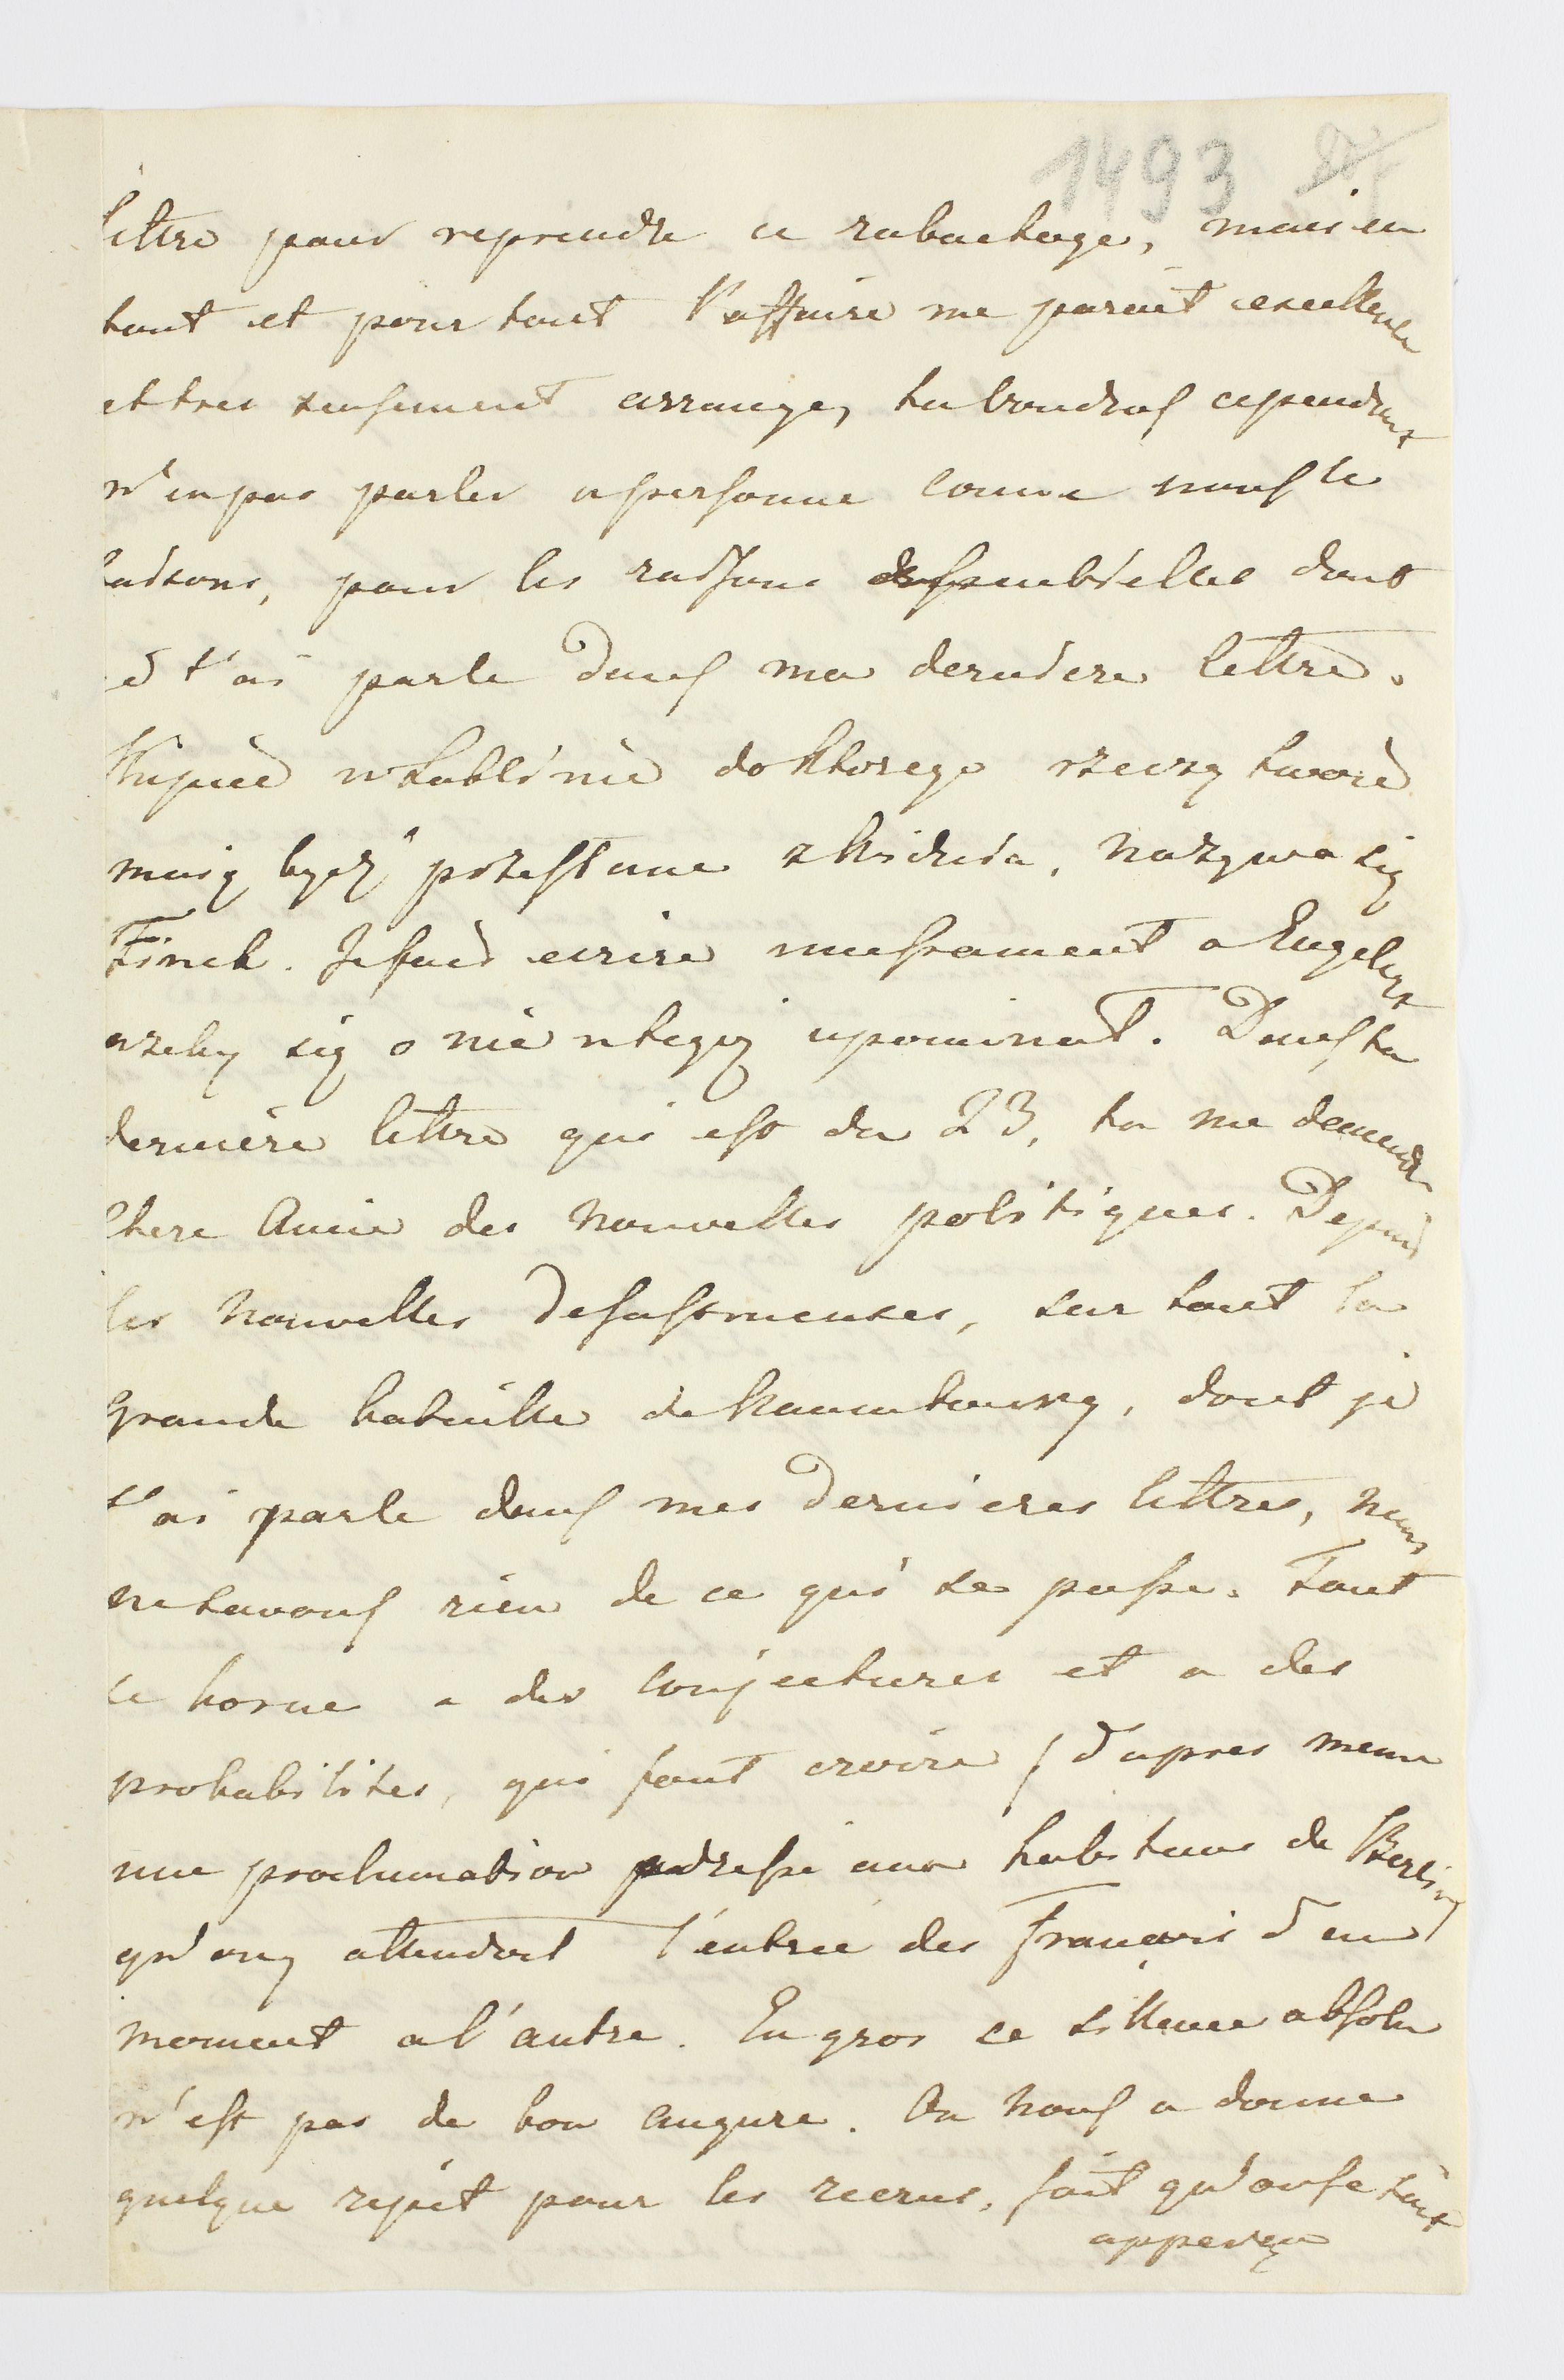 1493
lettre pour reprendre ce rabachage, mais en
tout et pour tout l'affaire me parait excellente
et tres sensement arrange, tu voudras cependant
n'en pas parler a personne comme nous le
faisons, pour les raisons essentielles dont
je t'ai parle dans ma derniere lettre.
Kupiec w Lublinie do ktorego rzeczy twoie
maią bydź przesłane z Brodow, nazywa się
Finck. Je fais ecrire incessament a Engelert
azeby się o nie u tegoż upominał. Dans ta
derniere lettre qui est du 23, tu me demande
Chere Amie des nouvelles politiques. Depuis
les nouvelles desastreuses, sur tout la
grande bataille de Naumbourg, dont je
t'ai parle dans mes dernieres lettres, nous
ne savons rien de ce qui se passe. Tout
ce borne a des conjectures et a des
probabilites, qui font croire / d'apres meme
une proclamation adresse aux habitans de Berlin/
qu'on y attendoit l'entree des Français d'un
moment a l'autre. En gros ce sillence absolu
n'est pas de bon augure. On nous a donne
quelque repit pour les recrues, soit qu'on se soit
apperçu